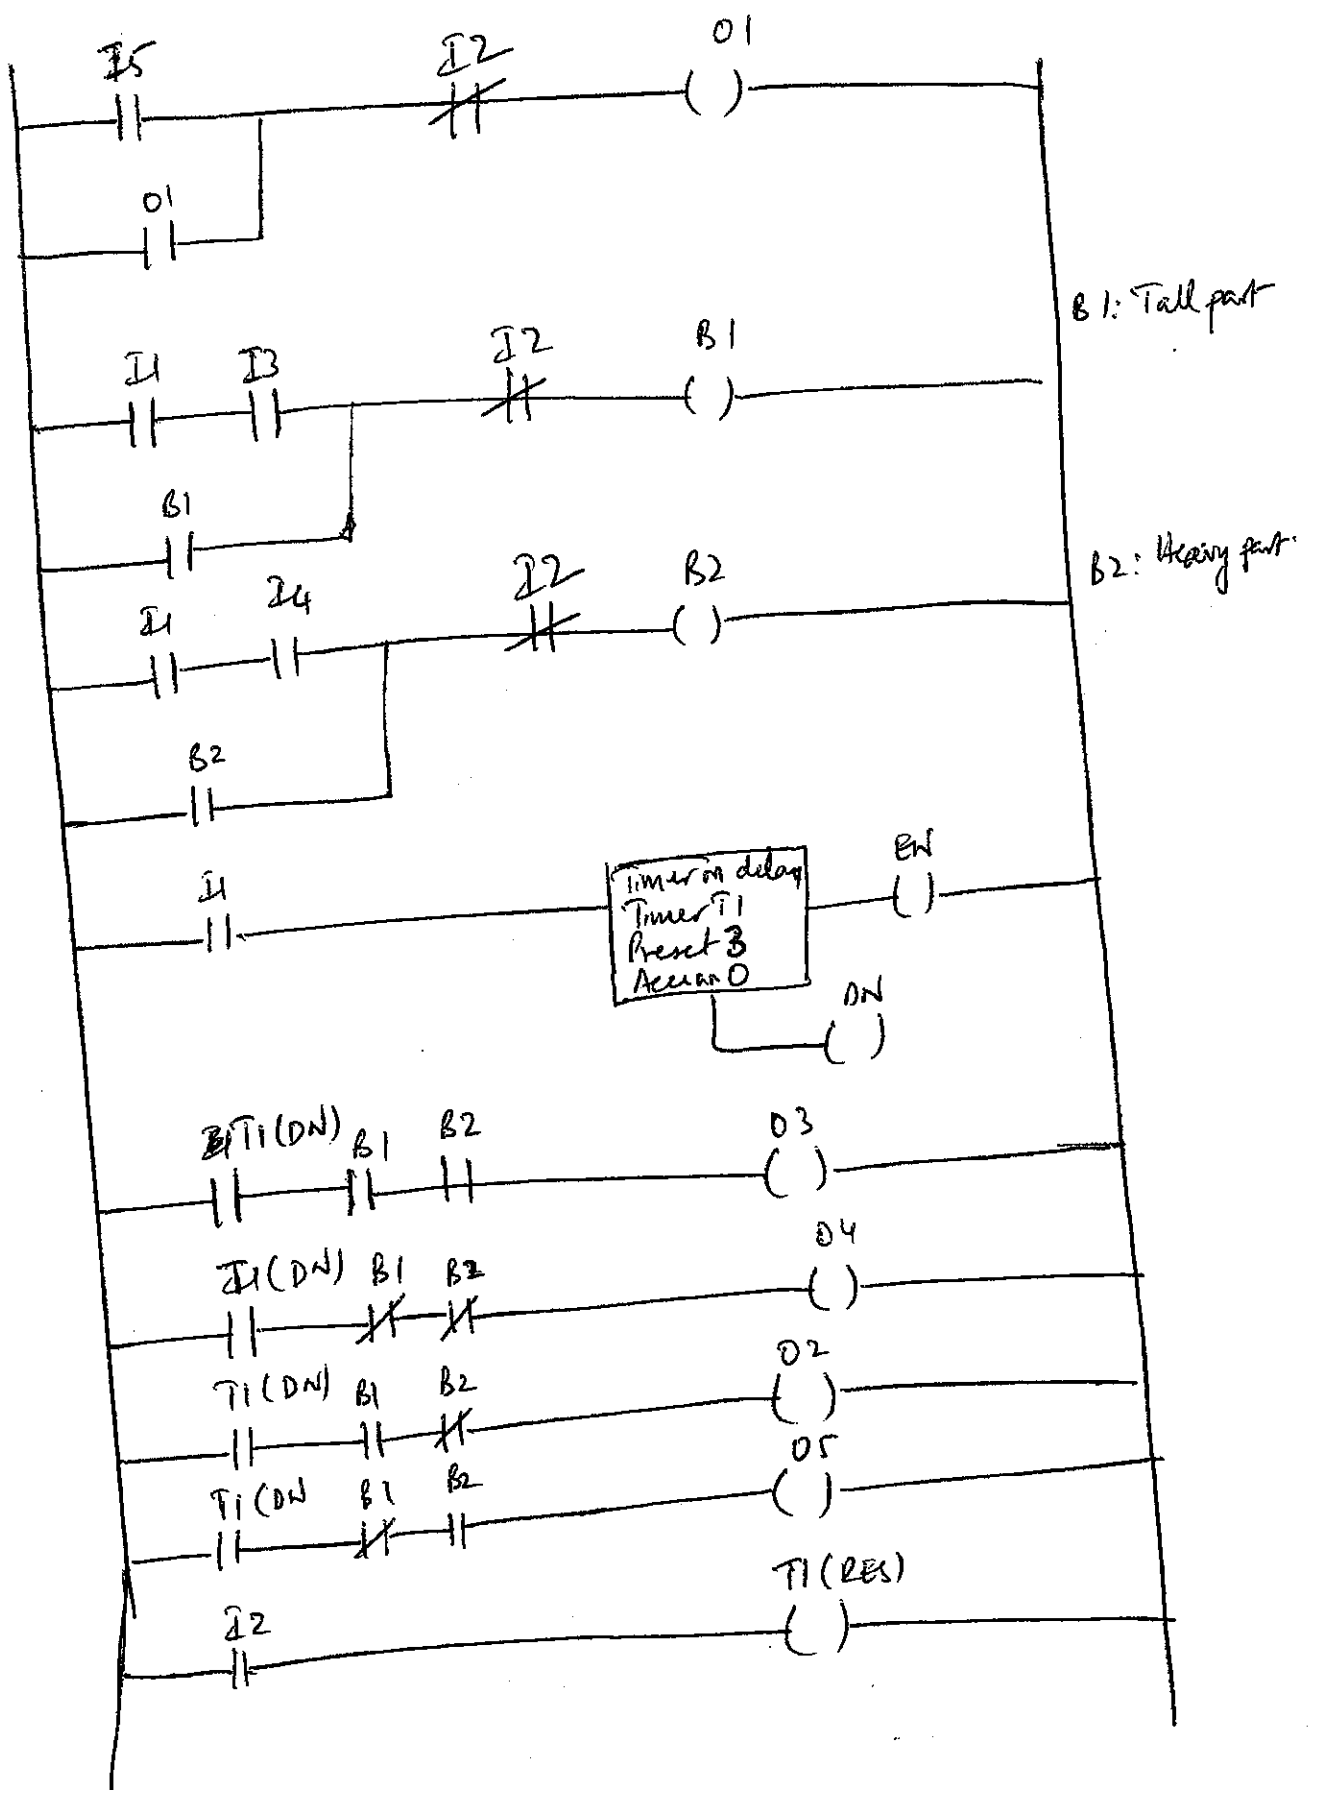 I5 I2 O1
O1
B1: Tall part
I1 I3 I2 B1
B1
B2: Heavy part.
I1 I4 I2 B2
B2
I1 EN
Timer on delay
Timer T1
Preset 3
Accum 0
DN
T1(DN) B1 B2 O3
I1(DN) B1 B2 O4
T1(DN) B1 B2 O2
T1(DN B1 B2 O5
I2 T1(RES)